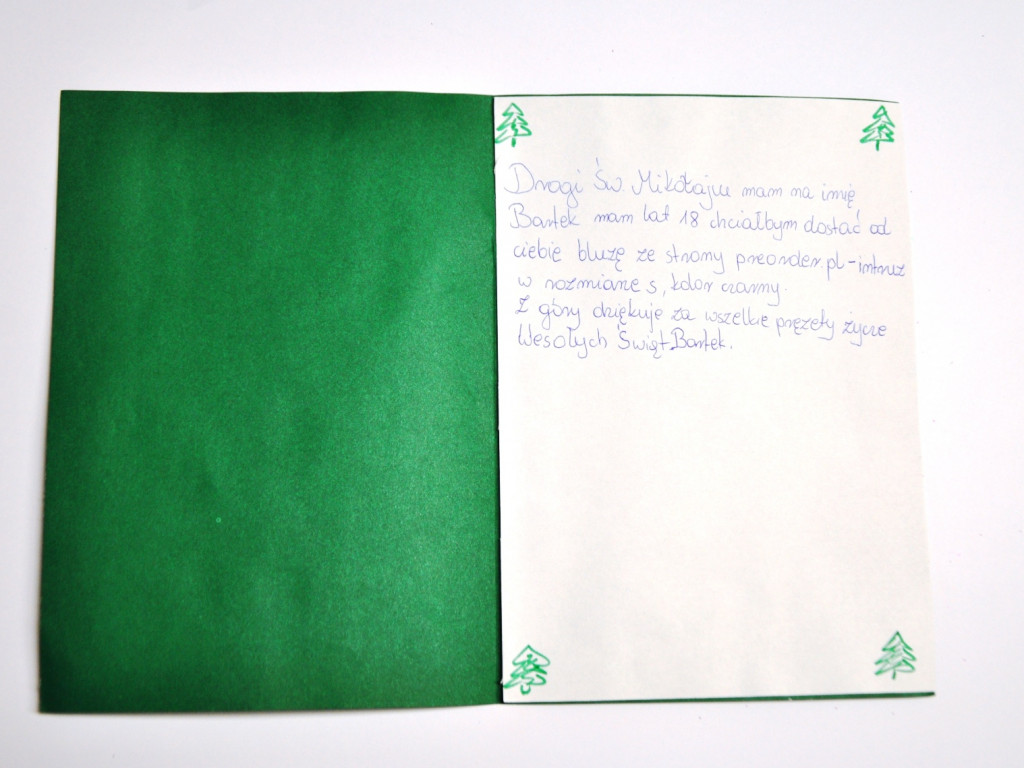 Drogi Św. Mikołaju mam na imię
Bartek mam lat 18 chciałbym dostać od
ciebie bluzę ze strony preorder.pl-intruz
w rozmiarze s, kolor czarny.
Z góry dziękuje za wszelkie prezęty życze
Wesołych Świąt Bartek.